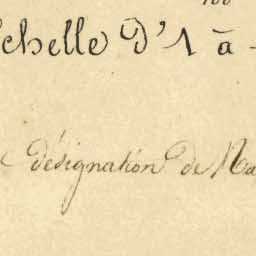 100
chelle D'1 à
désignation de Na